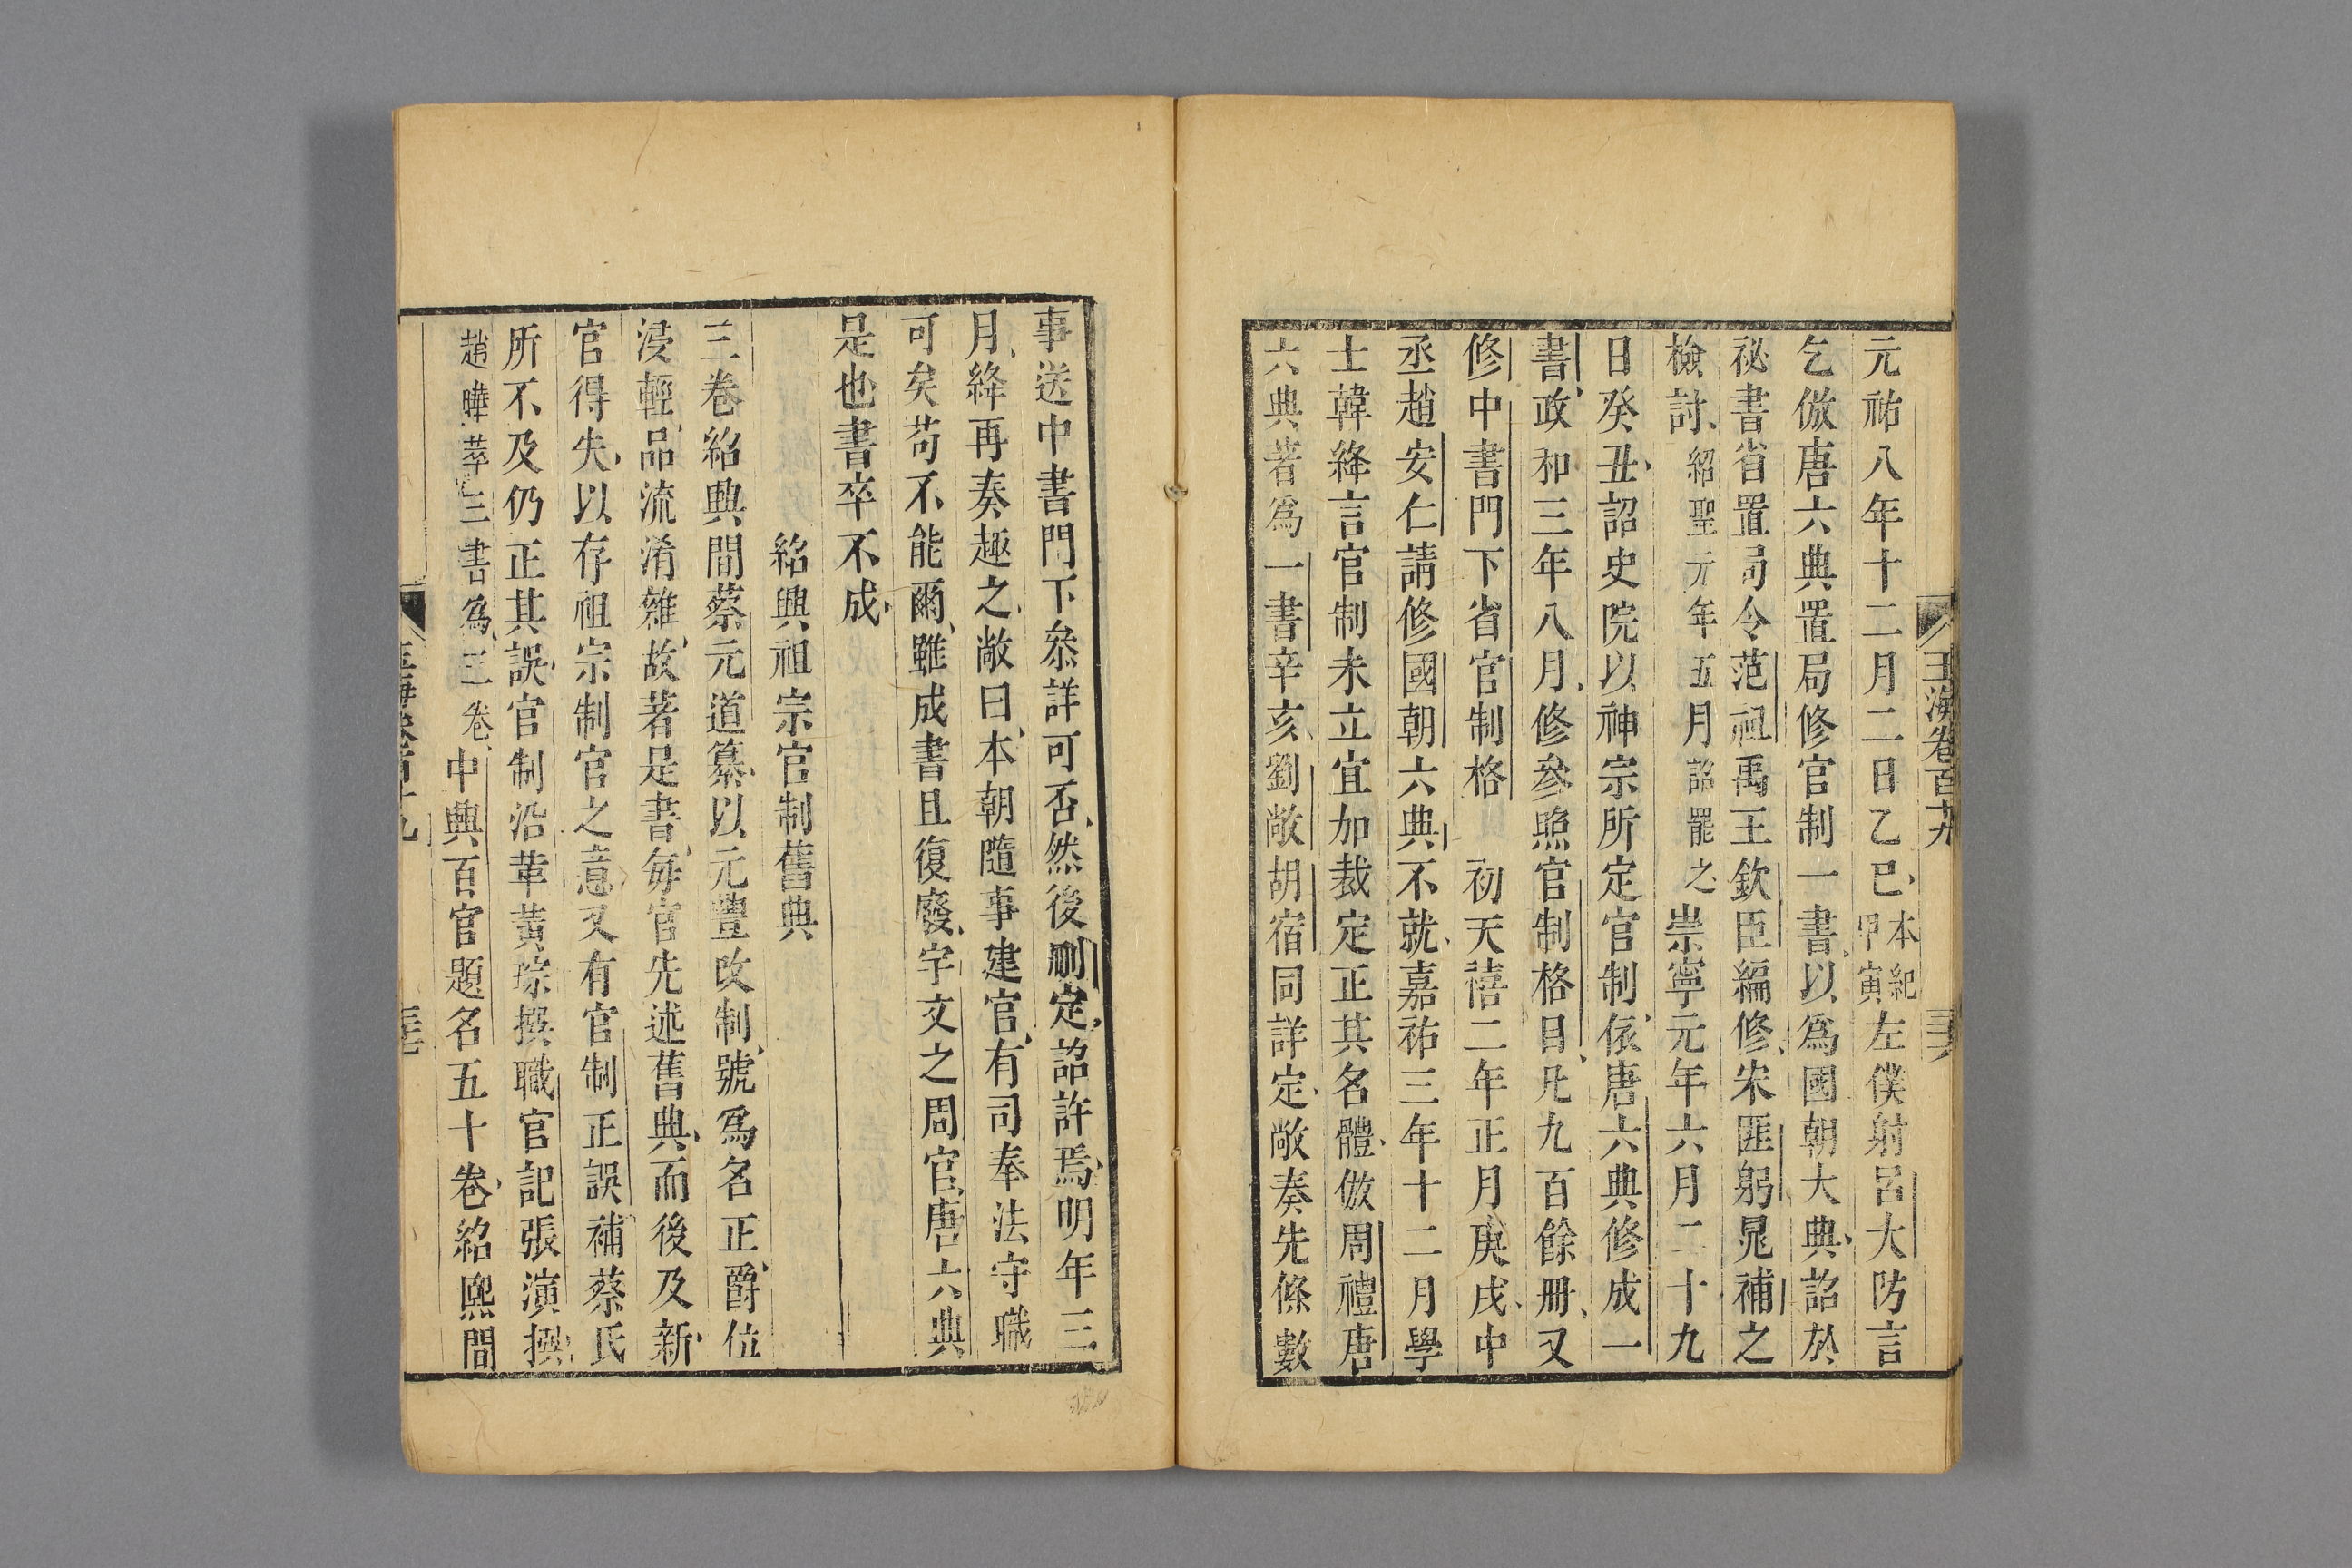 玉海卷百十九 三十六
元祐八年十二月二日乙巳本紀甲寅左僕射呂大防言
乞倣唐六典置局修官制一書以爲國朝大典詔於
祕書省置局令范祖禹王欽臣編修宋匪躬晁補之
檢討紹聖元年五月詔罷之崇寧元年六月二十九
日癸丑詔史院以神宗所定官制依唐六典修成一
書政和三年八月修參照官制格目凡九百餘冊又
修中書門下省官制格 初天禧二年正月庚戌中
丞趙安仁請修國朝六典不就嘉祐三年十二月學
士韓絳言官制未立宜加裁定正其名體倣周禮唐
六典著爲一書辛亥劉敞胡宿同詳定敞奏先條數
事送中書門下叅詳可否然後刪定詔許焉明年三
月絳再奏趣之敞曰本朝隨事建官有司奉法守職
可矣苟不能爾雖成書且復廢宇文之周官唐六典
是也書卒不成
紹興祖宗官制舊典
三卷紹興間蔡元道纂以元豐改制號爲名正爵位
浸輕品流淆雜故著是書每官先述舊典而後及新
官得失以存祖宗制官之意又有官制正誤補蔡氏
所不及仍正其誤官制沿革黃琮撰職官記張演撰
趙曄萃三書爲三卷中興百官題名五十卷紹熙間